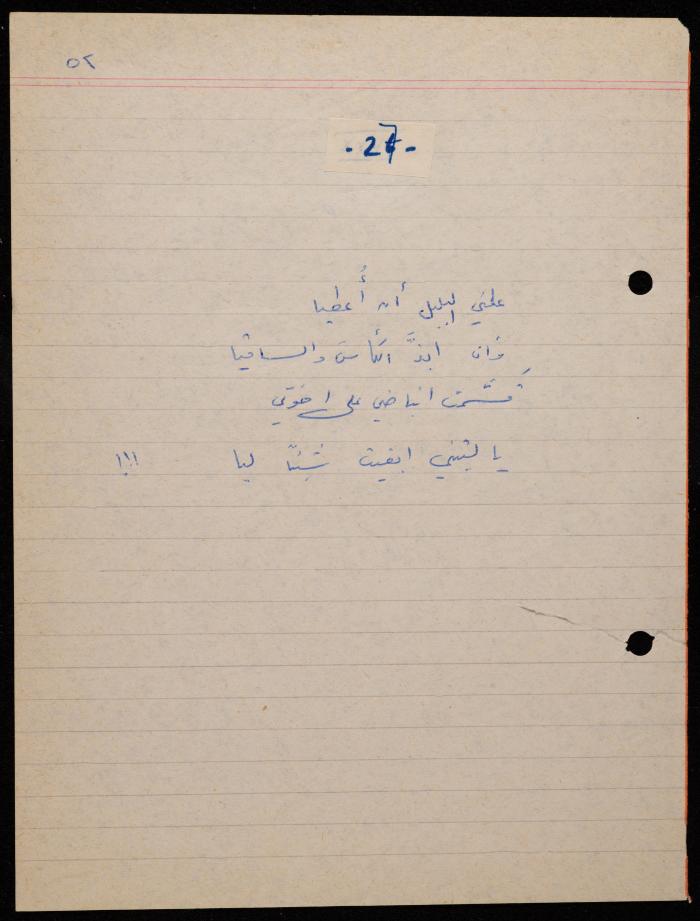 ٥٢
- 27 -
علمني البلبل أن أُعطيا
وَان ابذَّ الكأسَ والساقيا
قسّمت انباضي على اخوتي
يا ليتني ابقيت شيئاً ليا !!!